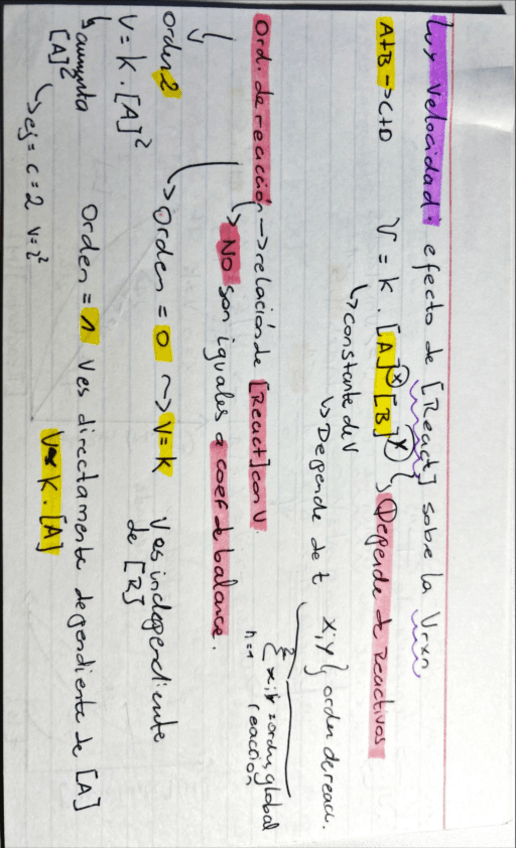 Ley velocidad: efecto de [React] sobre la Vrxn
A+B → C+D V = k . [A]^x [B]^y } Depende de Reactivos
↳ constante de V
↳ Depende de t x;y } orden de reacc.
Σ x;y = orden global
n=1 reacción
Ord. de reacción → relación de [React] con V.
↳ No son iguales a coef de balance.
↳ Orden = 0 ~> V=k V es independiente
de [R]
orden 2
V = k . [A]²
↳ aumenta
[A]²
↳ ej = c = 2 v = 2²
Orden = 1 V es directamente dependiente de [A]
V= k . [A]